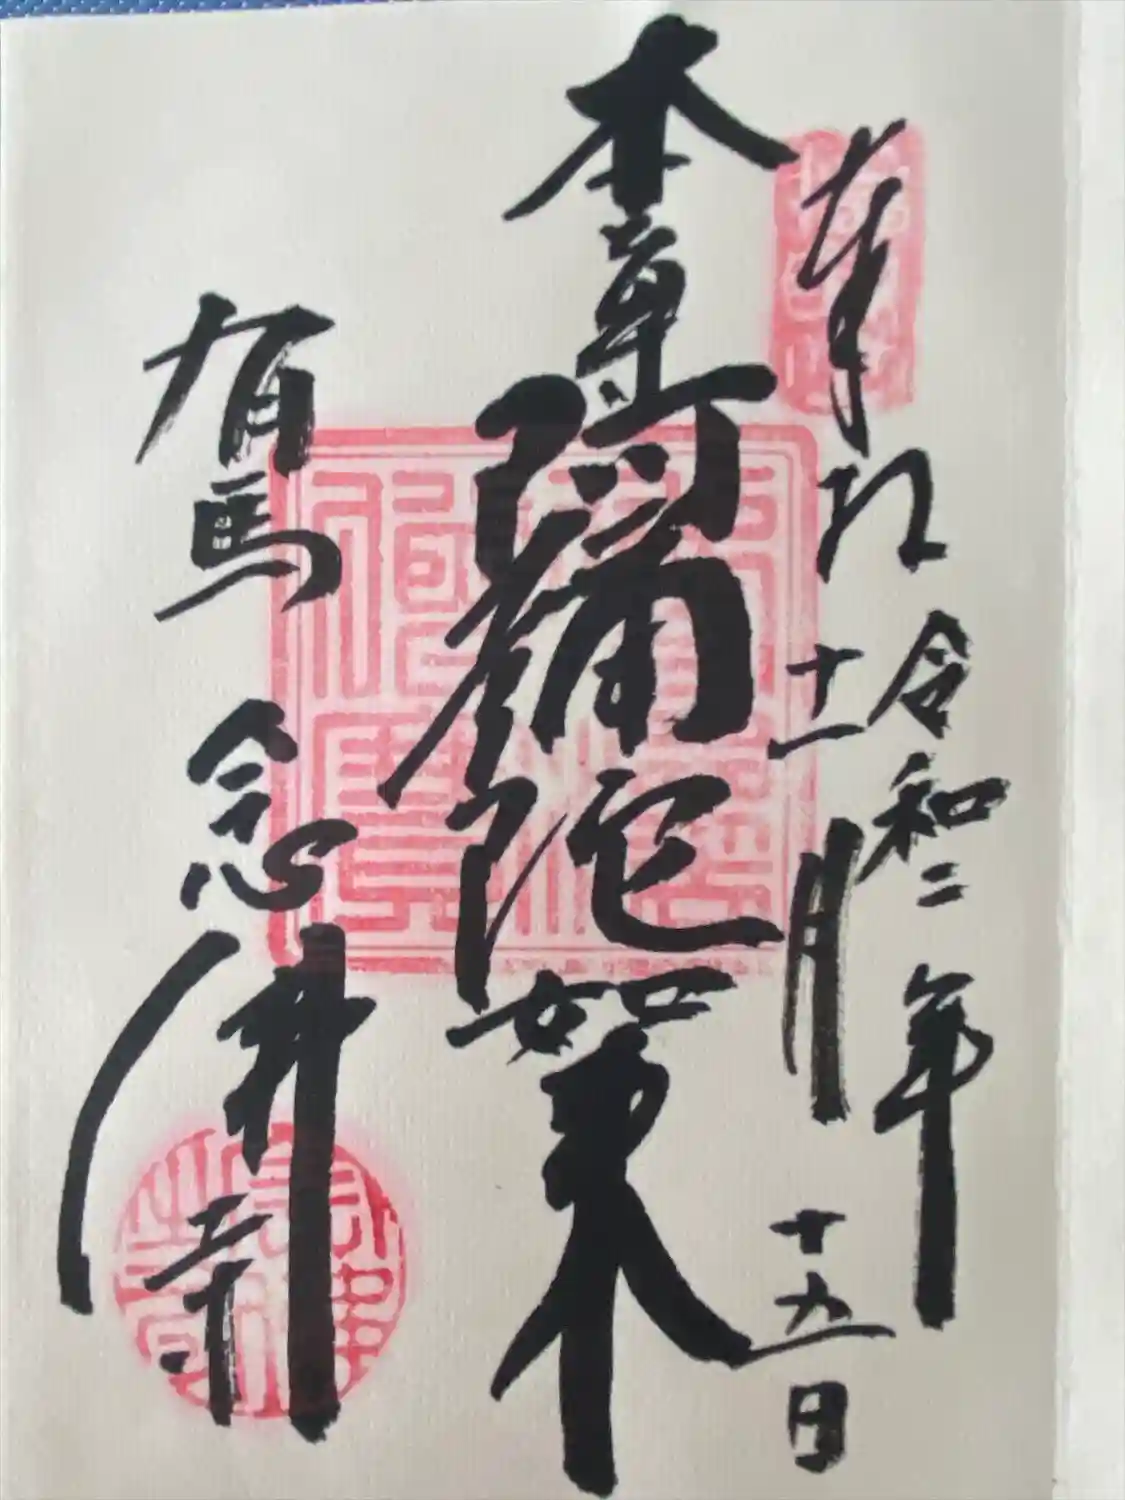 奉拝
令和二年
十一月十九日
本尊阿彌陀如来
有馬 念佛寺